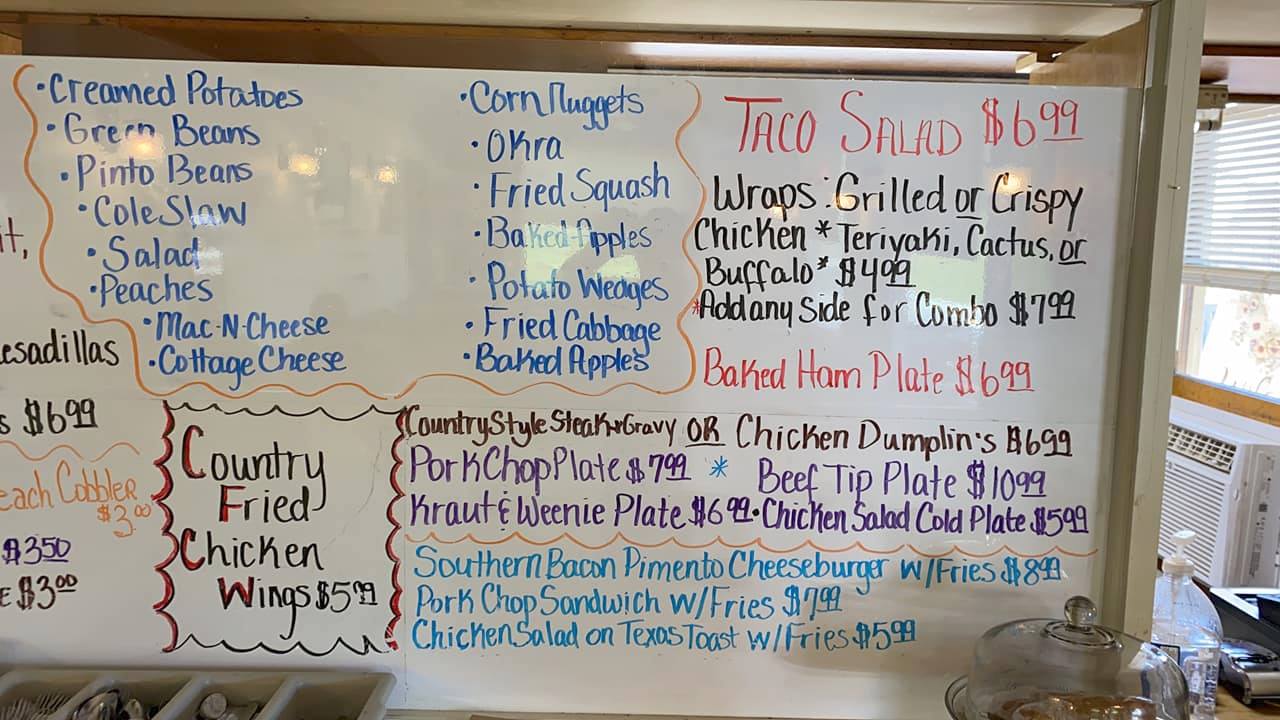 •Creamed Potatoes
•Green Beans
•Pinto Beans
•Cole Slaw
•Salad
•Peaches
•Mac-N-Cheese
•Cottage Cheese
•Corn Nuggets
•Okra
•Fried Squash
•Baked Apples
•Potato Wedges
•Fried Cabbage
•Baked Apples
Taco Salad $6.99
Wraps: Grilled or Crispy
Chicken * Teriyaki, Cactus, or
Buffalo* $4.99
*Add any Side for Combo $7.99
Baked Ham Plate $6.99
esadillas
s $6.99
each Cobbler
$3.00
$3.50
E $3.00
Country
Fried
Chicken
Wings $5.99
Country Style Steak & Gravy OR Chicken Dumplin's $6.99
Pork Chop Plate $7.99 * Beef Tip Plate $10.99
Kraut & Weenie Plate $6.99 • Chicken Salad Cold Plate $5.99
Southern Bacon Pimento Cheeseburger w/Fries $8.99
Pork Chop Sandwich w/Fries $7.99
Chicken Salad on Texas Toast w/Fries $5.99